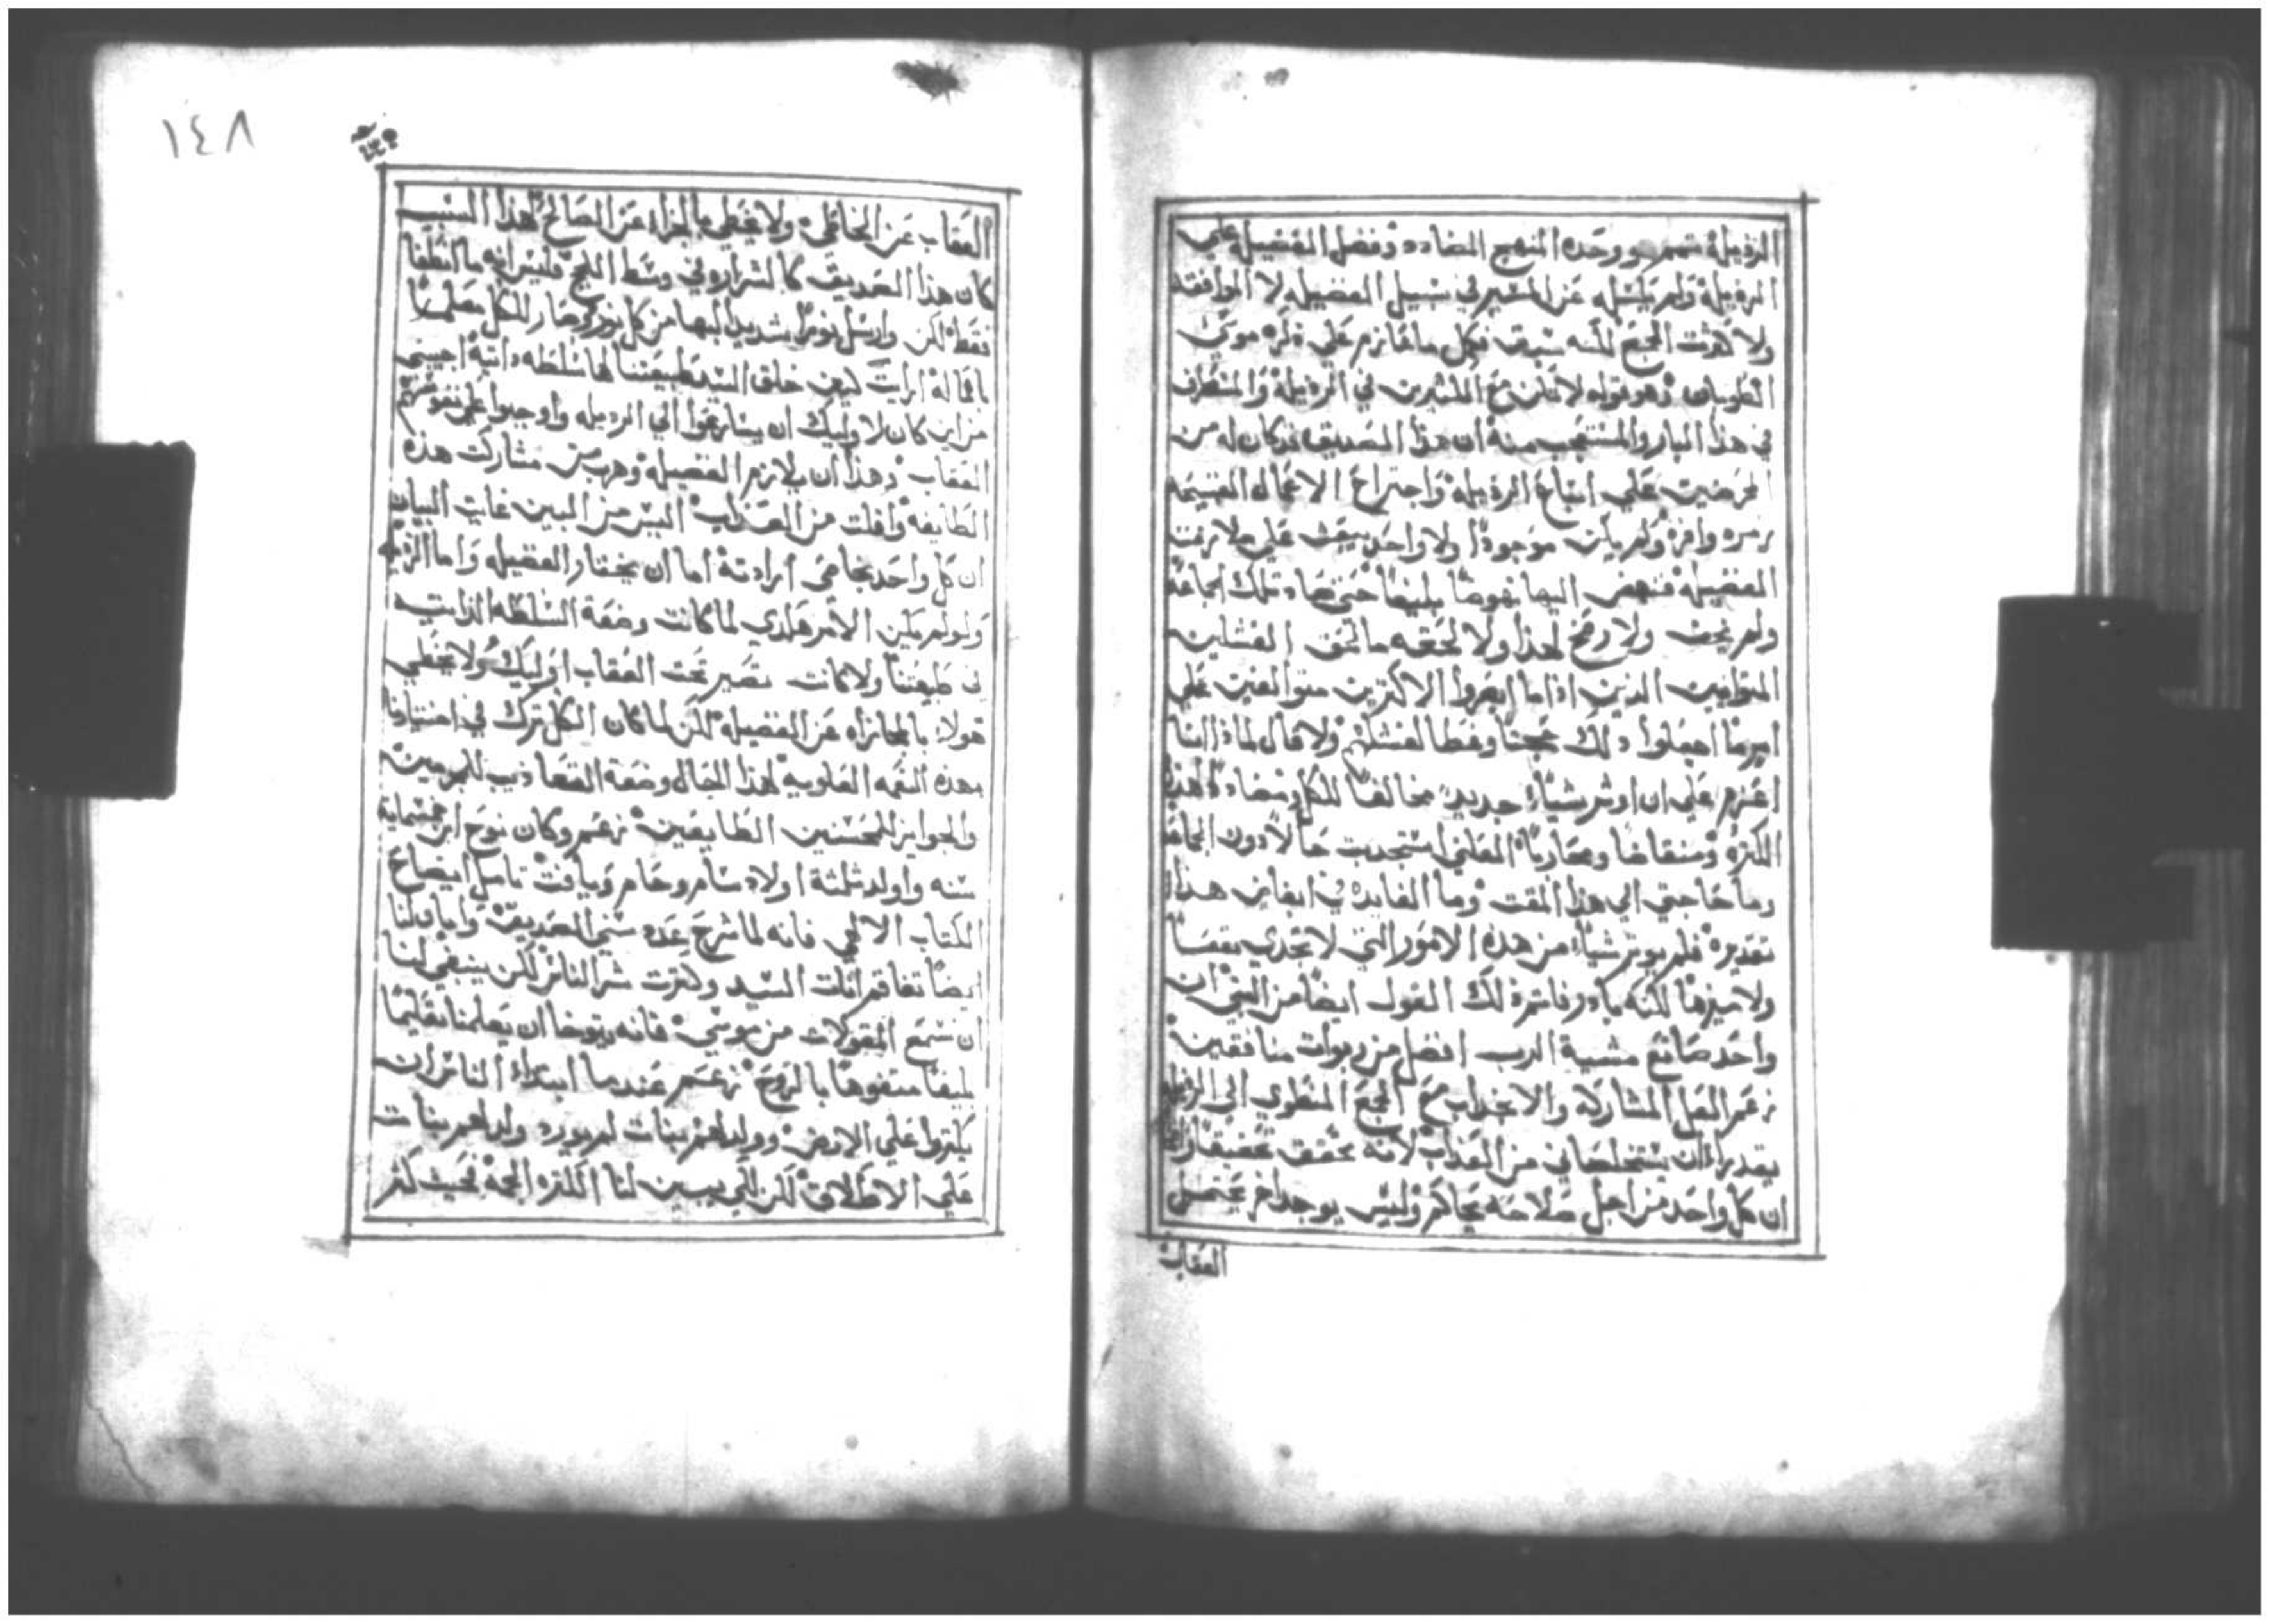 الرذيله وحده المنهج المضادد وفضل الفضيله علي
الرذيله ولم يكسله عن المسير في سبيل الفضيله لا الموافقه
ولا كثرت الجمع لكنه سبق فكمل ما قاله موسي
الطوباني وهو قوله لا تكن مع الكثيرين في الرذيله والمستظرف
في هذا البار والمستعجب منه ان هذا الصديق قد كان له من
المحرضين علي اتباع الرذيله واجتراح الاعماله القبيحه
زمره وافره ولم يكن موجودًا ولا واحد يبعث علي ملازمت
الفضيله فنهض اليها نهوضًا بليغًا حتي ضادد تلك الجماعه
ولم يخف ولا رضخ لهذا ولا لحقه ما لحق الفشلين
المتوانيين الذين اذا ما ابصروا الاكثرين متوالفين علي
امرما اجعلوا ذلك محجتًا وغطا لفشلهم ولا قال لماذا انا
اعزم علي ان اوثر شياءً جديدًا مخالفًا للكل ومضاددًا لهذه
الكثره ومناقضًا ومحاربًا المعلني استجديت حالًا دون الجماعه
وما حاجتي الي هذا المقت وما الفايده في ايقاني هذا
تقديره فلم يوثر شياء من هذه الامور التي لا تجدي نفعًا
ولا ميزها لكنه بادر فاتم ذلك القول ايضًا من النبي ان
واحد صانع مشية الرب افضل من ربوات منافقين
زعم العل المشاركه والانجداب مع الجمع المنطوي الي الرذيله
يقدراان يستخلصاني من العذاب لانه تحقق تحقيقًا
ان كل واحد من اجل صلاحه يحاكم وليس يوجد اخر يحتمل
العقاب
١٤٨
العقاب عن الخاطي ولا يحظي بالجزاء عن الصالح لهذا السبب
كان هذا الصديق كالشراره في وسط اللج فليس انه ما انطفا
فقط لكن وارسل نورًا شديد البها من كل نور وصار للكل معلمًا
باعماله ارايت كيف خلق السيد طبيعتنا لها سلطه ذاتية اجيبني
من اين كان لاوليك ان يسارعوا الي الرذيله واوجبوا علي نفوسهم
العقاب وهذا ان يلازم الفضيله وهرب من مشاركت هذه
الطايفه وافلت من العذاب اليس من البين غايت البيان
ان كل واحد بحامي ارادته اما ان يختار الفضيله واما الرذيله
ولو لم يكن الامر هكدي لما كانت وضعة السلطه الذاتيه
في طبعتنا ولا كانت تصير تحت العقاب اوليك ولا يحظي
هولا بالمجازاه عن الفضيله لكن لما كان الكل ترك في اختيارنا
بهذه النعمه العلويه لهذا الحال وضعة القعاديب للمجرمين
والجوايز للمحسنين الطايعين زعم وكان نوح ابن خمسمايه
سنه واولد ثلثة اولاد سام وحام ويافث تامل ايضاح
الكتاب الالهي فانه لما شرح عده سني الصديق وابان لنا
ايضًا تفاقم انات السيد وكثرت شر الناس لكن ينبغي لنا
ان نسمع المقولات من موسي فانه يتوخا ان يعلمنا تعليمًا
بليغًا متفوهًا بالروح زعم عندما ابتداء الناس ان
يكثروا علي الارض وولد لهم بنات لم يورد ولد لهم بنات
علي الاطلاق لكن لكي يبين لنا الكثره الجمه بحيث كثر